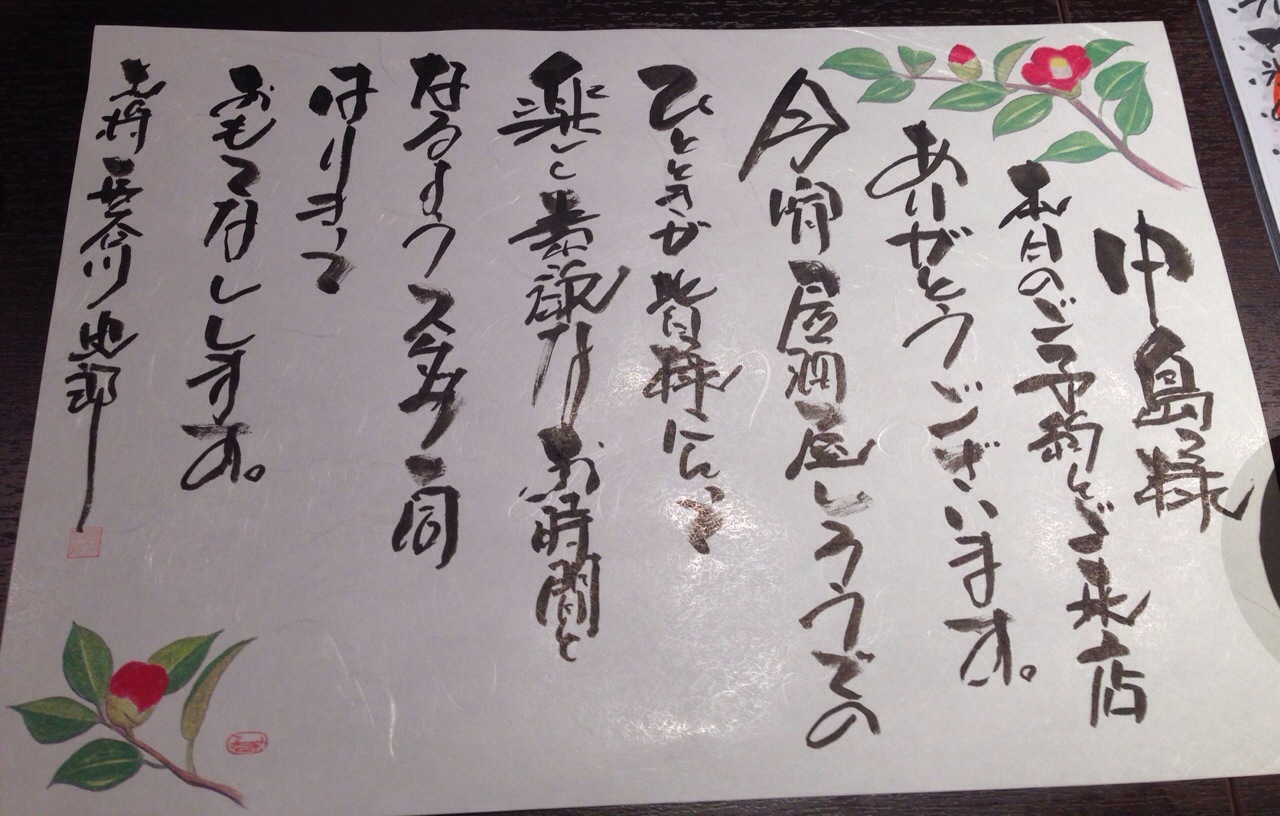 中島様
本日のご予約とご来店
ありがとうございます。
今宵居酒屋しろうでの
ひとときが皆様にとって
楽しく素敵なお時間と
なるようスタッフ一同
はりきって
おもてなしします。
大将 長谷川